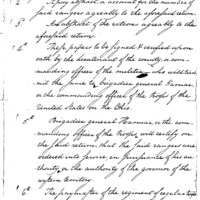 1st A pay abstract, & account for the number of
said rangers agreeably to the aforesaid return.
2d An abstract of the rations agreeably to the
aforesaid return.
3d These papers to be signed & verified upon
oath by the lieutenant of the county, or com-
manding officer of the militia, who will trans-
mit the same to Brigadier general Harmar,
or the commanding officer of the troops of the
United States on the Ohio.
4th Brigadier general Harmar, or the com-
manding officer of the troops, will certify on
the said return, that the said rangers were
ordered into service, in pursuance of his au-
thority, or the authority of the governor of the
western territory.
5th The paymaster of the regiment of regular troops